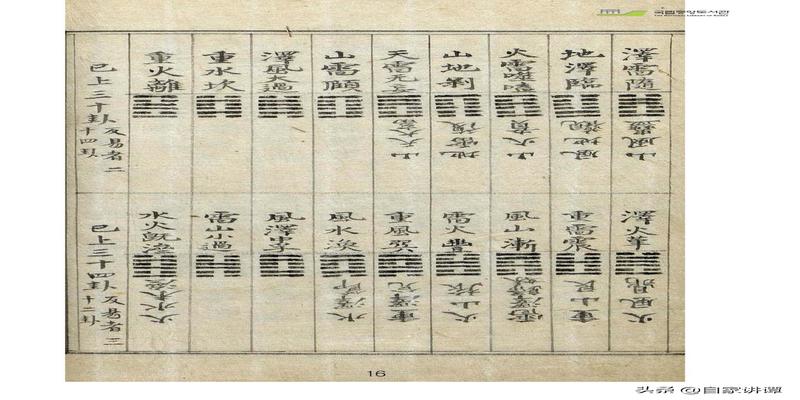 국립중앙도서관
THE NATIONAL LIBRARY OF KOREA
澤雷隨
山風蠱
地澤臨
風地觀
火雷噬嗑
山火賁
山地剝
地雷復
天雷无妄
山天大畜
山雷頤
澤風大過
重水坎
重火離
已上三十卦反易者二
十四卦
澤火革
火風鼎
重雷震
重山艮
風山漸
雷澤歸妹
雷火豐
火山旅
重風巽
重澤兌
風水渙
水澤節
風澤中孚
雷山小過
水火旣濟
火水未濟
已上三十四卦反易者三
十二卦
16
头条 @自家讲谭